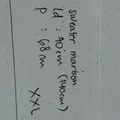 sweater maroon
ld : 90 cm (140cm)
P : 68 cm
XXL